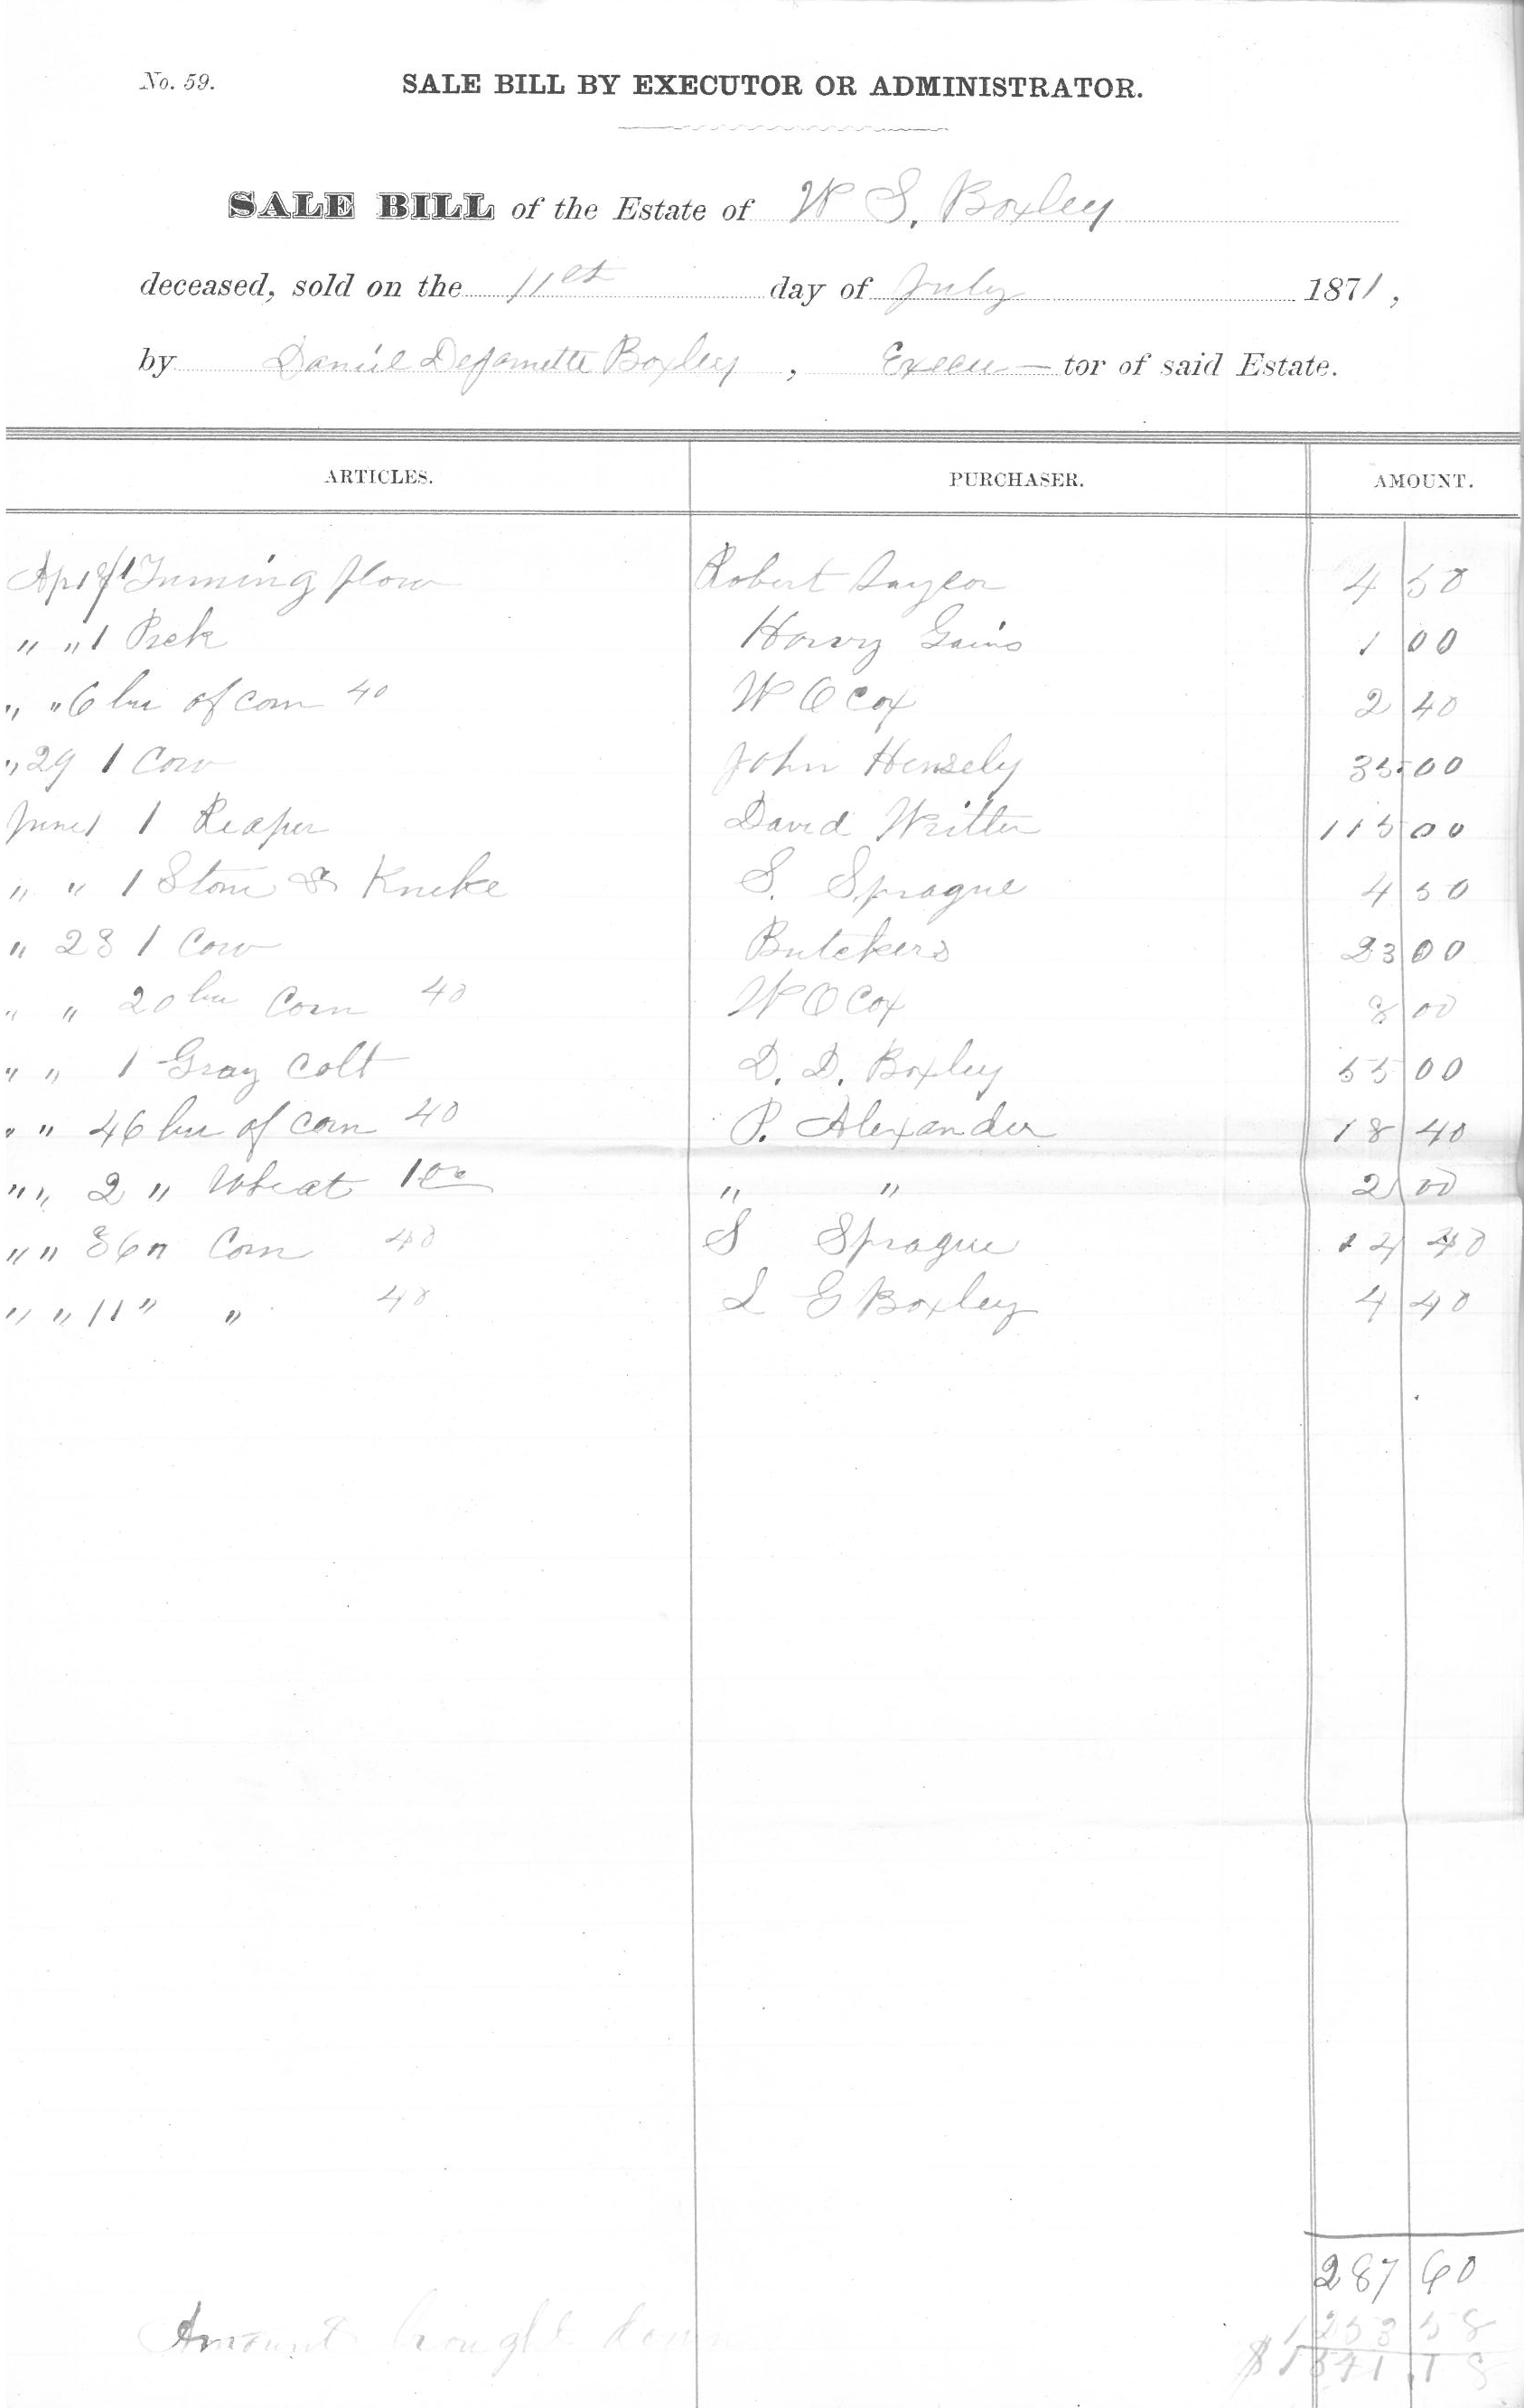 No. 59.
SALE BILL BY EXECUTOR OR ADMINISTRATOR.
SALE BILL of the Estate of W S. Boxley
deceased, sold on the 11et day of July 1871,
by Daniel Dejarnette Boxley, Execu-tor of said Estate.
ARTICLES. PURCHASER. AMOUNT.
Apr 8 1 Turning plow Robert Saylor 4 50
" " 1 Peek Harvy Gains 1 00
" " 6 bu of corn 40 W O Cox 2 40
" 29 1 Cow John Hensely 35.00
June 1 1 Reaper David Writter 115 00
" " 1 Stove & Knike S. Sprague 4 50
" 23 1 Cow Butchers 23 00
" " 20 bu Corn 40 W O Cox 8 00
" " 1 Gray Colt D. D. Boxley 55 00
" " 46 bu of corn 40 P. Alexander 18 40
" " 2 " Wheat 100 " " 2 00
" " 36 " Corn 40 S Sprague 14 40
" " 11 " " 40 L G Boxley 4 40
287 60
Amount brought down 1253 58
$1541.18